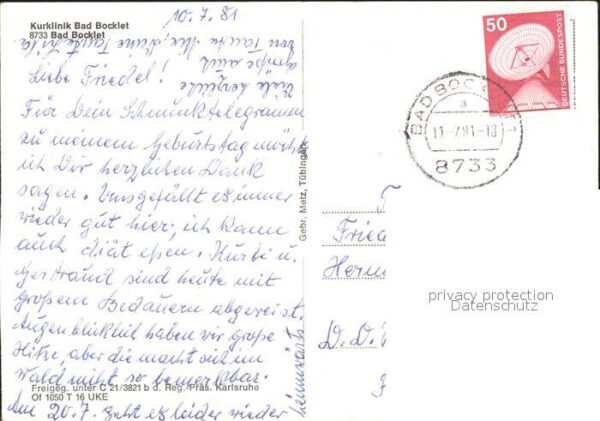 10.7.81
Kurklinik Bad Bocklet
8733 Bad Bocklet
Liebe Friedel!
Für Dein Schmucktelegramm
zu meinem Geburtstag möchte
ich Dir herzlichen Dank
sagen. Uns gefällt es immer
wieder gut hier, ich kann
auch diät essen. Kurbi u.
Gertraud sind heute mit
großem Bedauern abgereist.
Augenblicklich haben wir große
Hitze, aber die macht sich im
Wald nicht so bemerkbar.
Am 20.7. geht es leider wieder
heimwärts
Viele herzliche
Grüße auch
von Tante Mia, Deine Tante
Freigeg. unter C 21/3821 b d. Reg.-Präs. Karlsruhe
Of 1050 T 16 UKE
Gebr. Metz, Tübingen
50
DEUTSCHE BUNDESPOST
BAD BOCKLET 1
a
11.-7.81-18
8733
Fried
Herm
D.D.
privacy protection
Datenschutz